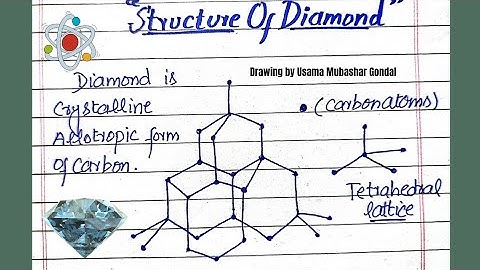 "Structure Of Diamond"
Drawing by Usama Mubashar Gondal
Diamond is
Crystalline
Allotropic form
Of Carbon.
(Carbon atoms)
Tetrahedral
lattice